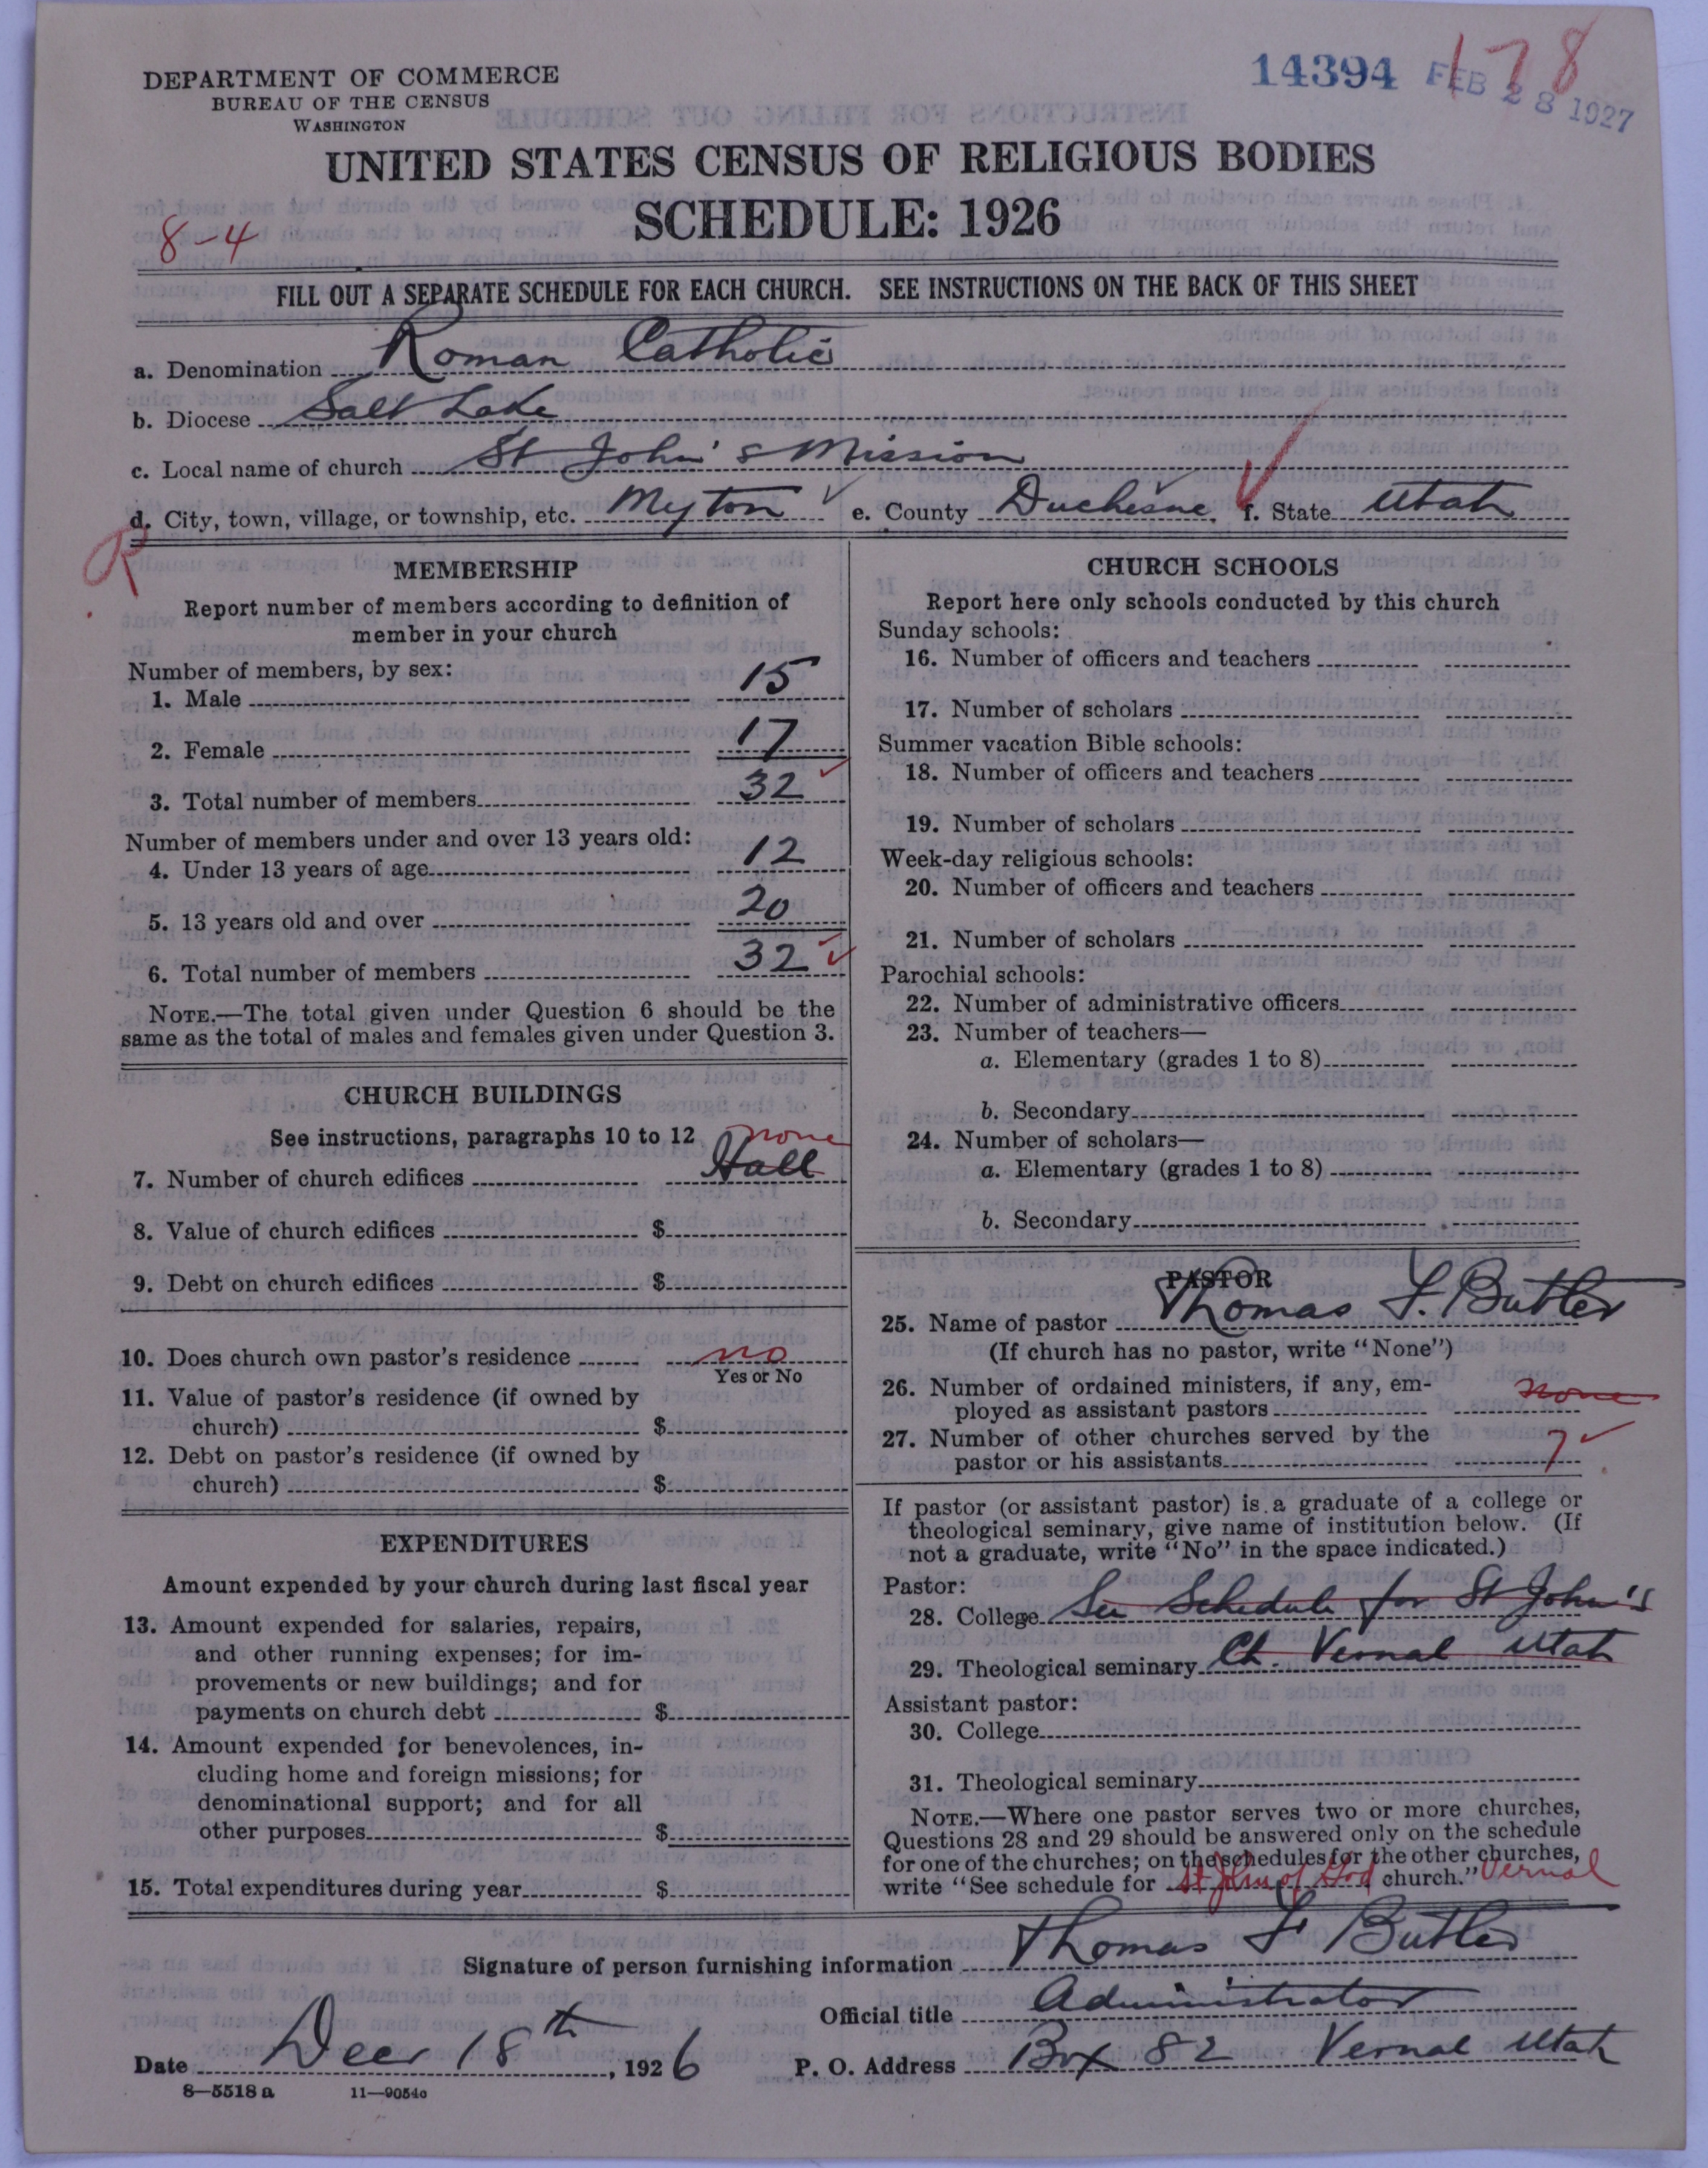 DEPARTMENT OF COMMERCE
BUREAU OF THE CENSUS
WASHINGTON
14394
FEB 28 1927
178
UNITED STATES CENSUS OF RELIGIOUS BODIES
SCHEDULE: 1926
8-4
FILL OUT A SEPARATE SCHEDULE FOR EACH CHURCH. SEE INSTRUCTIONS ON THE BACK OF THIS SHEET
a. Denomination Roman Catholic
b. Diocese Salt Lake
c. Local name of church St John's Mission
d. City, town, village, or township, etc. Myton e. County Duchesne f. State Utah
R
MEMBERSHIP
Report number of members according to definition of
member in your church
Number of members, by sex:
1. Male 15
2. Female 17
3. Total number of members 32
Number of members under and over 13 years old:
4. Under 13 years of age 12
5. 13 years old and over 20
6. Total number of members 32
NOTE.—The total given under Question 6 should be the
same as the total of males and females given under Question 3.
CHURCH BUILDINGS
See instructions, paragraphs 10 to 12
none
7. Number of church edifices Hall
8. Value of church edifices $
9. Debt on church edifices $
10. Does church own pastor's residence no
Yes or No
11. Value of pastor's residence (if owned by
church) $
12. Debt on pastor's residence (if owned by
church) $
EXPENDITURES
Amount expended by your church during last fiscal year
13. Amount expended for salaries, repairs,
and other running expenses; for im-
provements or new buildings; and for
payments on church debt $
14. Amount expended for benevolences, in-
cluding home and foreign missions; for
denominational support; and for all
other purposes $
15. Total expenditures during year $
CHURCH SCHOOLS
Report here only schools conducted by this church
Sunday schools:
16. Number of officers and teachers
17. Number of scholars
Summer vacation Bible schools:
18. Number of officers and teachers
19. Number of scholars
Week-day religious schools:
20. Number of officers and teachers
21. Number of scholars
Parochial schools:
22. Number of administrative officers
23. Number of teachers—
a. Elementary (grades 1 to 8)
b. Secondary
24. Number of scholars—
a. Elementary (grades 1 to 8)
b. Secondary
PASTOR
25. Name of pastor Thomas F. Butler
(If church has no pastor, write "None")
26. Number of ordained ministers, if any, em-
ployed as assistant pastors none
27. Number of other churches served by the
pastor or his assistants 7
If pastor (or assistant pastor) is a graduate of a college or
theological seminary, give name of institution below. (If
not a graduate, write "No" in the space indicated.)
Pastor:
28. College See Schedule for St John's
29. Theological seminary Ch. Vernal Utah
Assistant pastor:
30. College
31. Theological seminary
NOTE.—Where one pastor serves two or more churches,
Questions 28 and 29 should be answered only on the schedule
for one of the churches; on the schedules for the other churches,
write "See schedule for St John of God church." Vernal
Signature of person furnishing information Thomas F Butler
Official title Administrator
Date Decr 18th, 1926 P. O. Address Box 82 Vernal Utah
8—5518 a 11—9054o